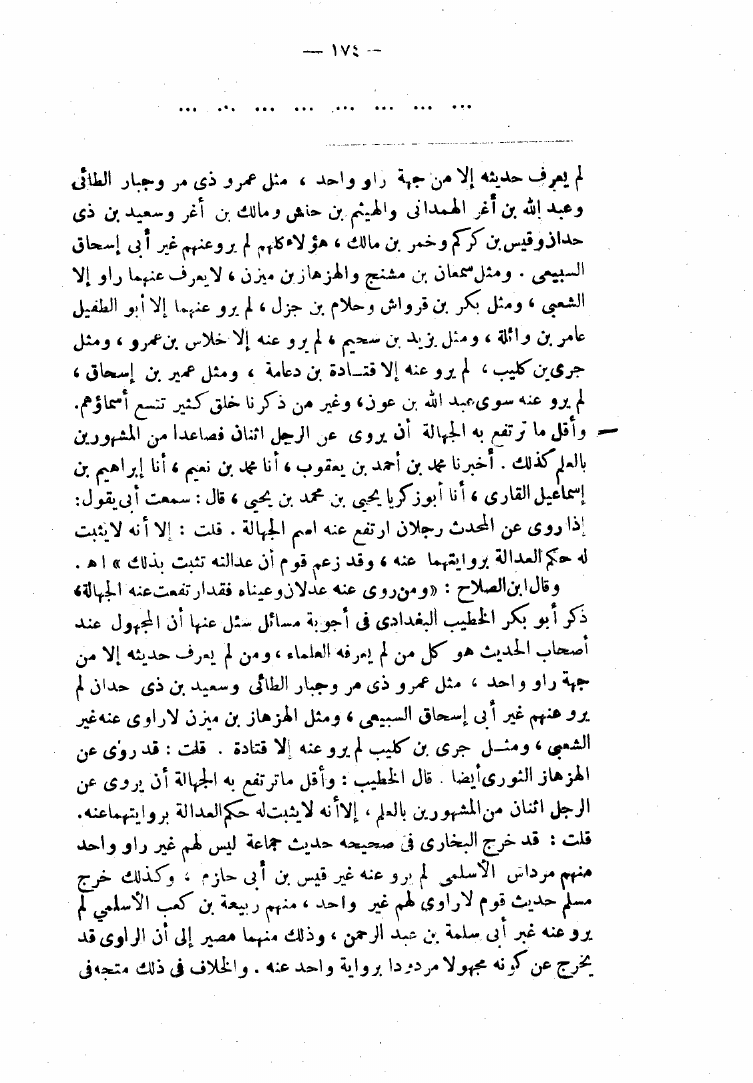 — ١٧٤ —
... ... ... ... ... ... ... ...
لم يعرف حديثه إلا من جهة راو واحد ، مثل عمرو ذى مر وجبار الطائى
وعبد الله بن أغر الهمدانى والهيثم بن حنش ومالك بن أغر وسعيد بن ذى
حدان وقيس بن كركم وخمر بن مالك ، هؤلاء كلهم لم يرو عنهم غير أبى إسحاق
السبيعى . ومثل سمعان بن مشنج والهزهاز بن ميزن ، لا يعرف عنهما راو إلا
الشعبى ، ومثل بكر بن قرواش وحلام بن جزل ، لم يرو عنهما إلا أبو الطفيل
عامر بن واثلة ، ومثل يزيد بن سحيم ، لم يرو عنه إلا خلاس بن عمرو ، ومثل
جرى بن كليب ، لم يرو عنه إلا قتـادة بن دعامة ، ومثل عمير بن إسحاق ،
لم يرو عنه سوى عبد الله بن عون ، وغير من ذكرنا خلق كثير تتسع أسماؤهم.
— وأقل ما ترتفع به الجهالة أن يروى عن الرجل اثنان فصاعدا من المشهورين
بالعلم كذلك . أخبرنا محمد بن أحمد بن يعقوب ، أنا محمد بن نعيم ، أنا إبراهيم بن
إسماعيل القارى ، أنا أبو زكريا يحيى بن محمد بن يحيى ، قال : سمعت أبى يقول :
إذا روى عن المحدث رجلان ارتفع عنه اسم الجهالة . قلت : إلا أنه لا يثبت
له حكم العدالة بروايتهما عنه ، وقد زعم قوم أن عدالته تثبت بذلك » اهـ .
وقال ابن الصلاح : «ومن روى عنه عدلان وعيناه فقد ارتفعت عنه الجهالة،
ذكر أبو بكر الخطيب البغدادى فى أجوبة مسائل سئل عنها أن المجهول عند
أصحاب الحديث هو كل من لم يعرفه العلماء ، ومن لم يعرف حديثه إلا من
جهة راو واحد ، مثل عمرو ذى مر وجبار الطائى وسعيد بن ذى حدان لم
يرو عنهم غير أبى إسحاق السبيعى ، ومثل الهزهاز بن ميزن لا راوى عنه غير
الشعبى ، ومثـل جرى بن كليب لم يرو عنه إلا قتادة . قلت : قد روى عن
الهزهاز الثورى أيضا . قال الخطيب : وأقل ما ترتفع به الجهالة أن يروى عن
الرجل اثنان من المشهورين بالعلم ، إلا أنه لا يثبت له حكم العدالة بروايتهما عنه.
قلت : قد خرج البخارى فى صحيحه حديث جماعة ليس لهم غير راو واحد
منهم مرداس الأسلمى لم يرو عنه غير قيس بن أبى حازم ، وكذلك خرج
مسلم حديث قوم لا راوى لهم غير واحد ، منهم ربيعة بن كعب الأسلمي لم
يرو عنه غير أبى سلمة بن عبد الرحمن ، وذلك منهما مصير إلى أن الراوى قد
يخرج عن كونه مجهولا مردودا برواية واحد عنه . والخلاف فى ذلك متجه فى